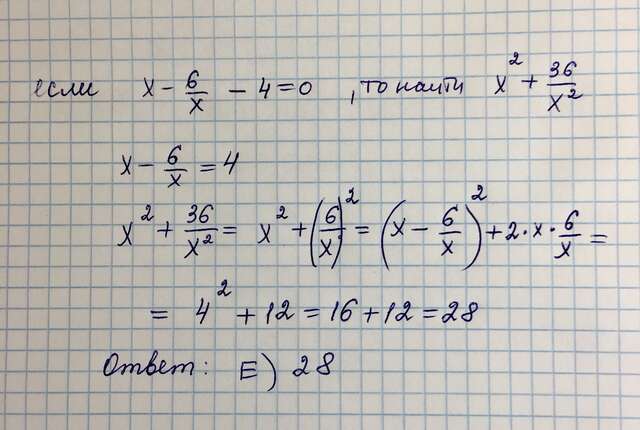 если x - 6/x - 4 = 0 , то найти x² + 36/x²
x - 6/x = 4
x² + 36/x² = x² + (6/x)² = (x - 6/x)² + 2·x·6/x =
= 4² + 12 = 16 + 12 = 28
Ответ: E) 28